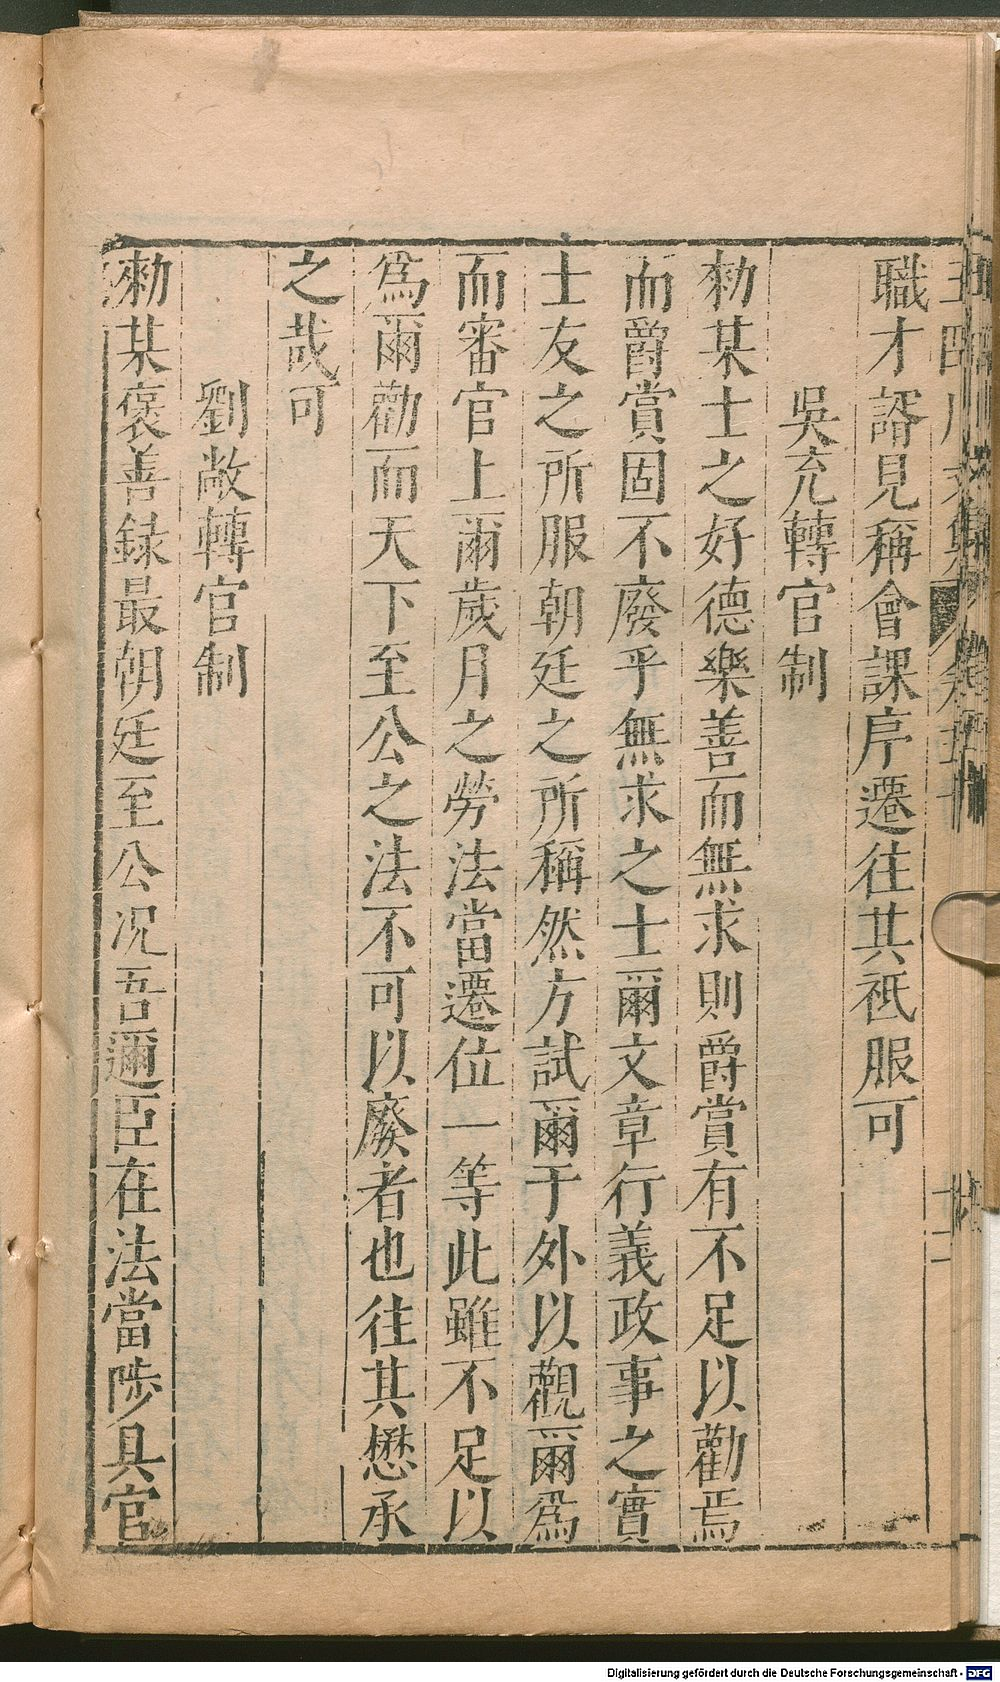 職才諝見稱會課序遷往其祗服可
吳充轉官制
勑某士之好德樂善而無求則爵賞有不足以勸焉
而爵賞固不廢乎無求之士爾文章行義政事之實
士友之所服朝廷之所稱然方試爾于外以觀爾爲
而審官上爾歲月之勞法當遷位一等此雖不足以
爲爾勸而天下至公之法不可以廢者也往其懋承
之哉可
劉敞轉官制
勑某褒善録最朝廷至公况吾邇臣在法當陟具官
Digitalisierung gefördert durch die Deutsche Forschungsgemeinschaft - DFG